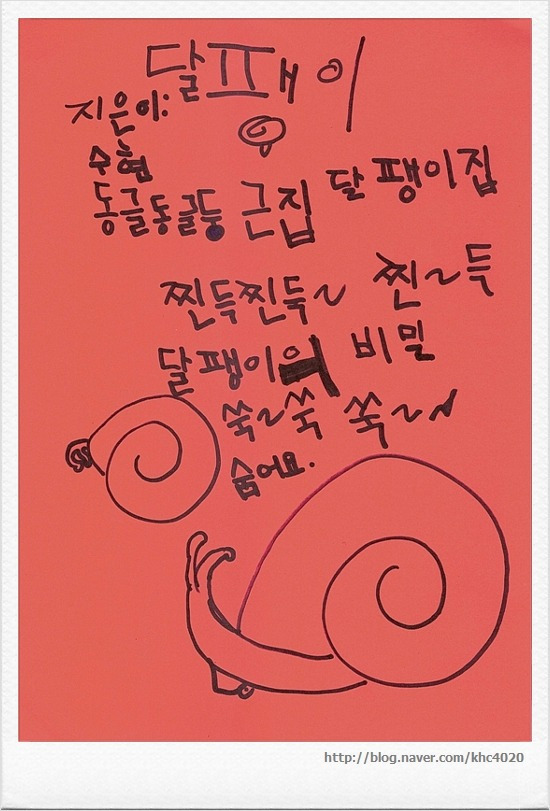 달팽이
지은이:
수혐
동글동글둥근집 달팽이집
찐득찐둑~ 찐~득
달팽이의 비밀
쑥~쑥 쏙~~
숨어요.
http://blog.naver.com/khc4020